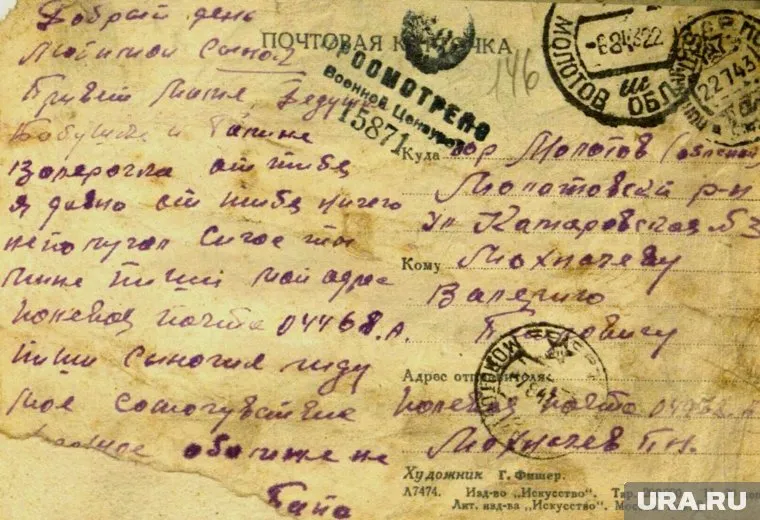 Добрый день
Любимой Сынок
Привет Маме, Дедушке
Бабушке и Галине
Валерочка от тибя
я давно от тибя ничего
неполучал Сичас ты
мине пиши мой адрес
полевая почта 04468.А.
пиши сыночик жду
мое
обо мне не
Папа
ПОЧТОВАЯ КАРТОЧКА
146
ПРОСМОТРЕНО
Военной Цензурой
15871
МОЛОТОВ ОБЛ.
22743
Куда гор Молотов (областной)
Молотовский р-н
Ул Камаровская № 3
Кому Мохначеву
Валерию
Павловичу
Адрес отправителя:
полевая почта 04468.А
Мохначев П.Н.
Художник Г. Фишер.
А7474. Изд-во „Искусство".
Лит. изд-ва „Искусство".
URA.RU